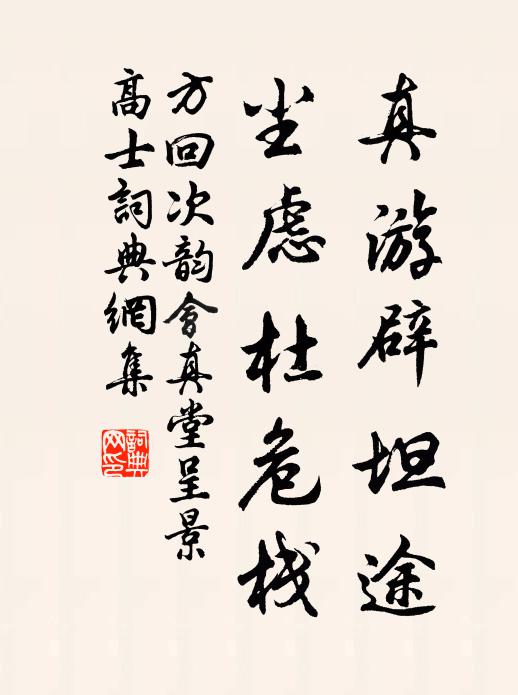 真游辟坦途
尘虑杜危栈
方回次韵会真堂呈景
高士詞典網集
詞典
网印